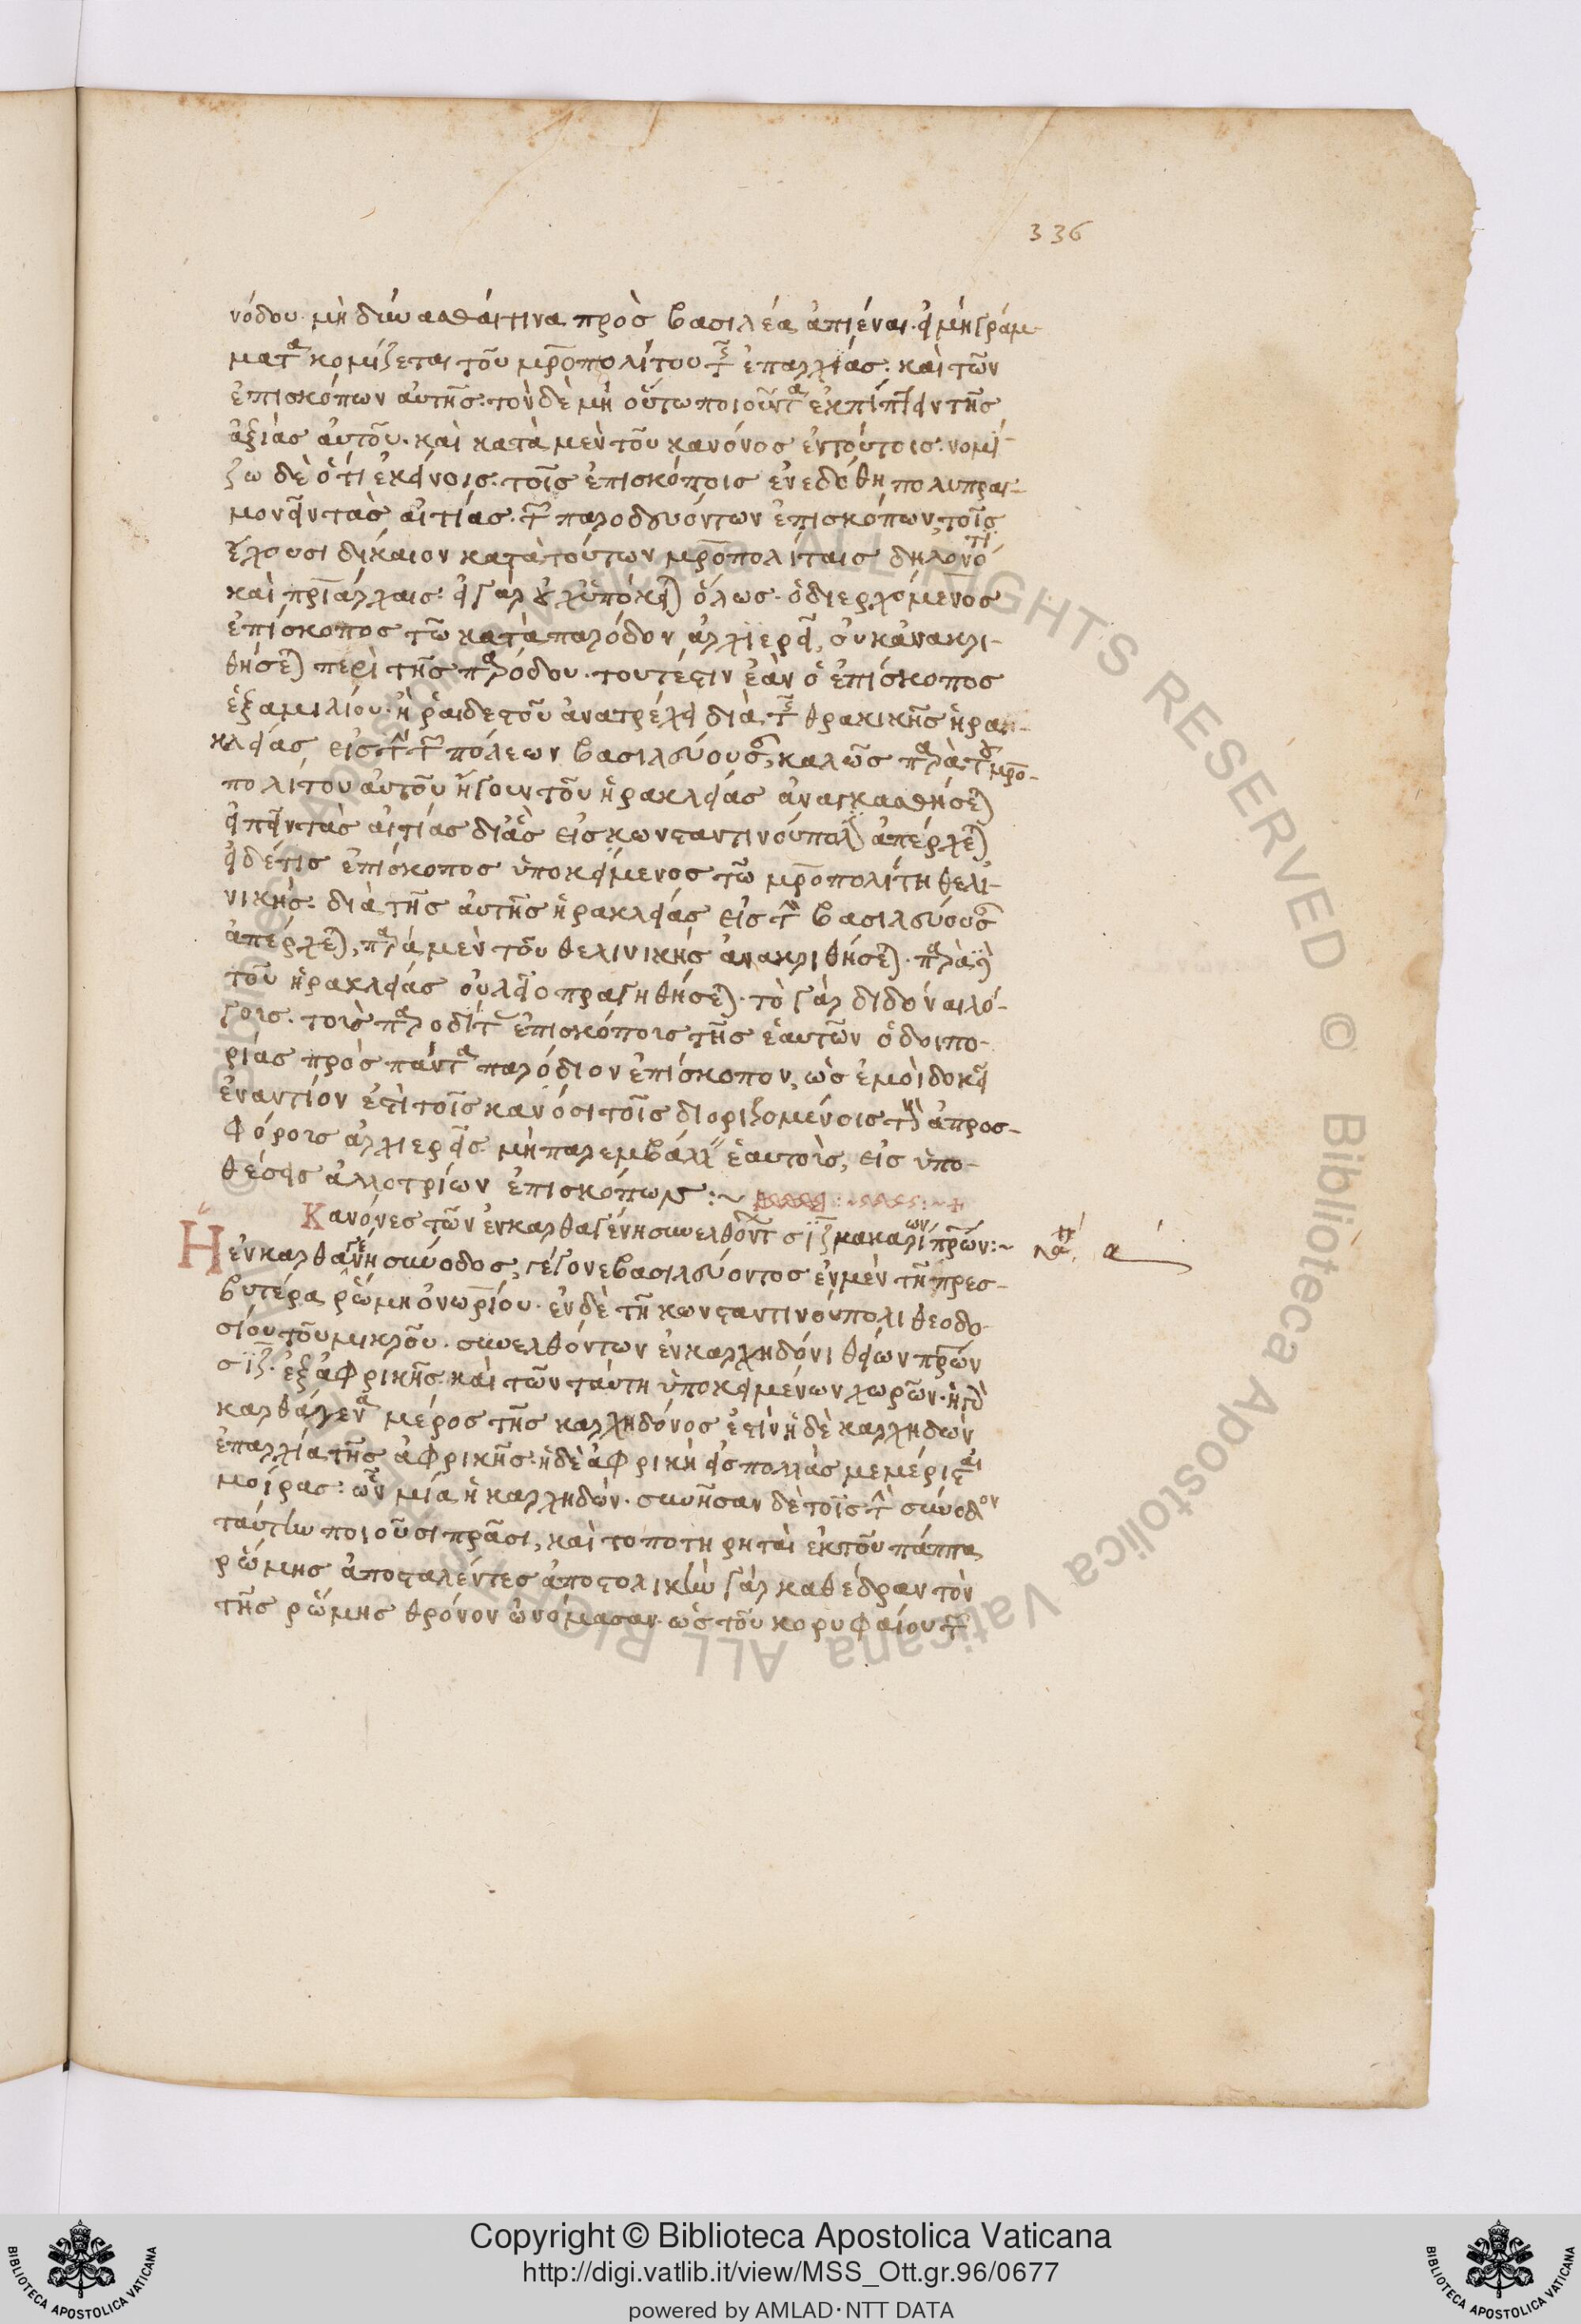 336
νόδου· μὴ δύνασθαί τινα πρὸς βασιλέα ἀπιέναι· εἰ μὴ γράμ-
ματα κομίζεται τοῦ μρ̅οπολίτου τῆς ἐπαρχίας· καὶ τῶν
ἐπισκόπων αὐτῆς· τὸν δὲ μὴ οὕτω ποιοῦντα ἐκπίπτειν τῆς
ἀξίας αὐτοῦ· καὶ κατὰ μὲν τοῦ κανόνος ἐν τούτοις· νομί-
ζω δὲ ὅτι ἐκείνοις· τοῖς ἐπισκόποις ἐνεδόθη πολυπραγ-
μονεῖν τὰς αἰτίας· τῶν παροδευόντων ἐπισκόπων, τοῖς
ἔχουσι δίκαιον κατὰ τούτων μρ̅οπολίταις δηλονότι
καὶ πρ̅ιάρχαις· εἰ γὰρ οὐχ ὑπόκειται ὅλως· ὁ διερχόμενος
ἐπίσκοπος τῶ κατὰ παρόδον ἀρχιερεῖ, οὐκ ἀνακρι-
θήσεται περὶ τῆς παρόδου· τουτέστιν ἐὰν ὁ ἐπίσκοπος
ἑξαμιλίου· ἢ ῥαιδεστοῦ ἀνατρέχει διὰ τῆς θρακικῆς ἡρα-
κλείας, εἰς τὴν τῶν πόλεων βασιλεύουσαν, καλῶς παρὰ τοῦ μρ̅ο-
πολίτου αὐτοῦ ἤγουν τοῦ ἡρακλείας ἀναγκασθήσεται
εἰπεῖν τὰς αἰτίας δι᾽ ἃς εἰς κωνσταντινούπολιν ἀπέρχεται
εἰ δέ τις ἐπίσκοπος ὑποκείμενος τῶ μρ̅οπολίτη θελι-
νικῆς· διὰ τῆς αὐτῆς ἡρακλείας εἰς τὴν βασιλεύουσαν
ἀπέρχεται, παρὰ μὲν τοῦ θελινικῆς ἀνακριθήσεται· παρὰ δὲ
τοῦ ἡρακλείας οὐ πραγηθήσεται· τὸ γὰρ διδόναι λό-
γοις· τοῖς παροδίταις ἐπισκόποις τῆς ἑαυτῶν ὁδοιπο-
ρίας πρὸς πάντα παρόδιον ἐπίσκοπον, ὡς ἐμοὶ δοκεῖ
ἐναντίον ἐστὶ τοῖς κανόσι τοῖς διοριζομένοις τὴν ἀπροσ-
φόροις ἀρχιερεῖς μὴ παρεμβάλλειν ἑαυτοὺς, εἰς ὑπο-
θέσεις ἀλλοτρίων ἐπισκόπων:~
Κανόνες τῶν ἐν καρθαγένη συνελθόντων σϊζ μακαρίων πρ̅ων:~
Ἡ ἐν καρθαγένη σύνοδος, γέγονε βασιλεύοντος ἐν μὲν τῆ πρεσ-
βυτέρα ῥώμη ὀνωρίου· ἐν δὲ τῆ κωνσταντινούπολι θεοδο-
σίου τοῦ μικροῦ· συνελθόντων ἐν καρχηδόνι θείων πρ̅ων
σϊζ· ἐξ ἀφρικῆς καὶ τῶν ταύτη ὑποκειμένων χωρῶν· ἡ δὲ
καρθάγενα μέρος τῆς καρχηδόνος ἐστὶν ἡ δὲ καρχηδὼν
ἐπαρχία τῆς ἀφρικῆς· ἡ δὲ ἀφρικὴ εἰς πολλὰς μεμέρισται
μοίρας· ὧν μία ἡ καρχηδών· συνῆσαν δὲ τοῖς τὴν σύνοδον
ταύτην ποιοῦσι πρ̅άσι, καὶ τοποτηρηταὶ ἐκ τοῦ πάππα
ῥώμης ἀποσταλέντες ἀποστολικὴν γὰρ καθέδραν τὸν
τῆς ῥώμης θρόνον ὠνόμασαν· ὡς τοῦ κορυφαίου τῶν
Copyright © Biblioteca Apostolica Vaticana
http://digi.vatlib.it/view/MSS_Ott.gr.96/0677
powered by AMLAD·NTT DATA